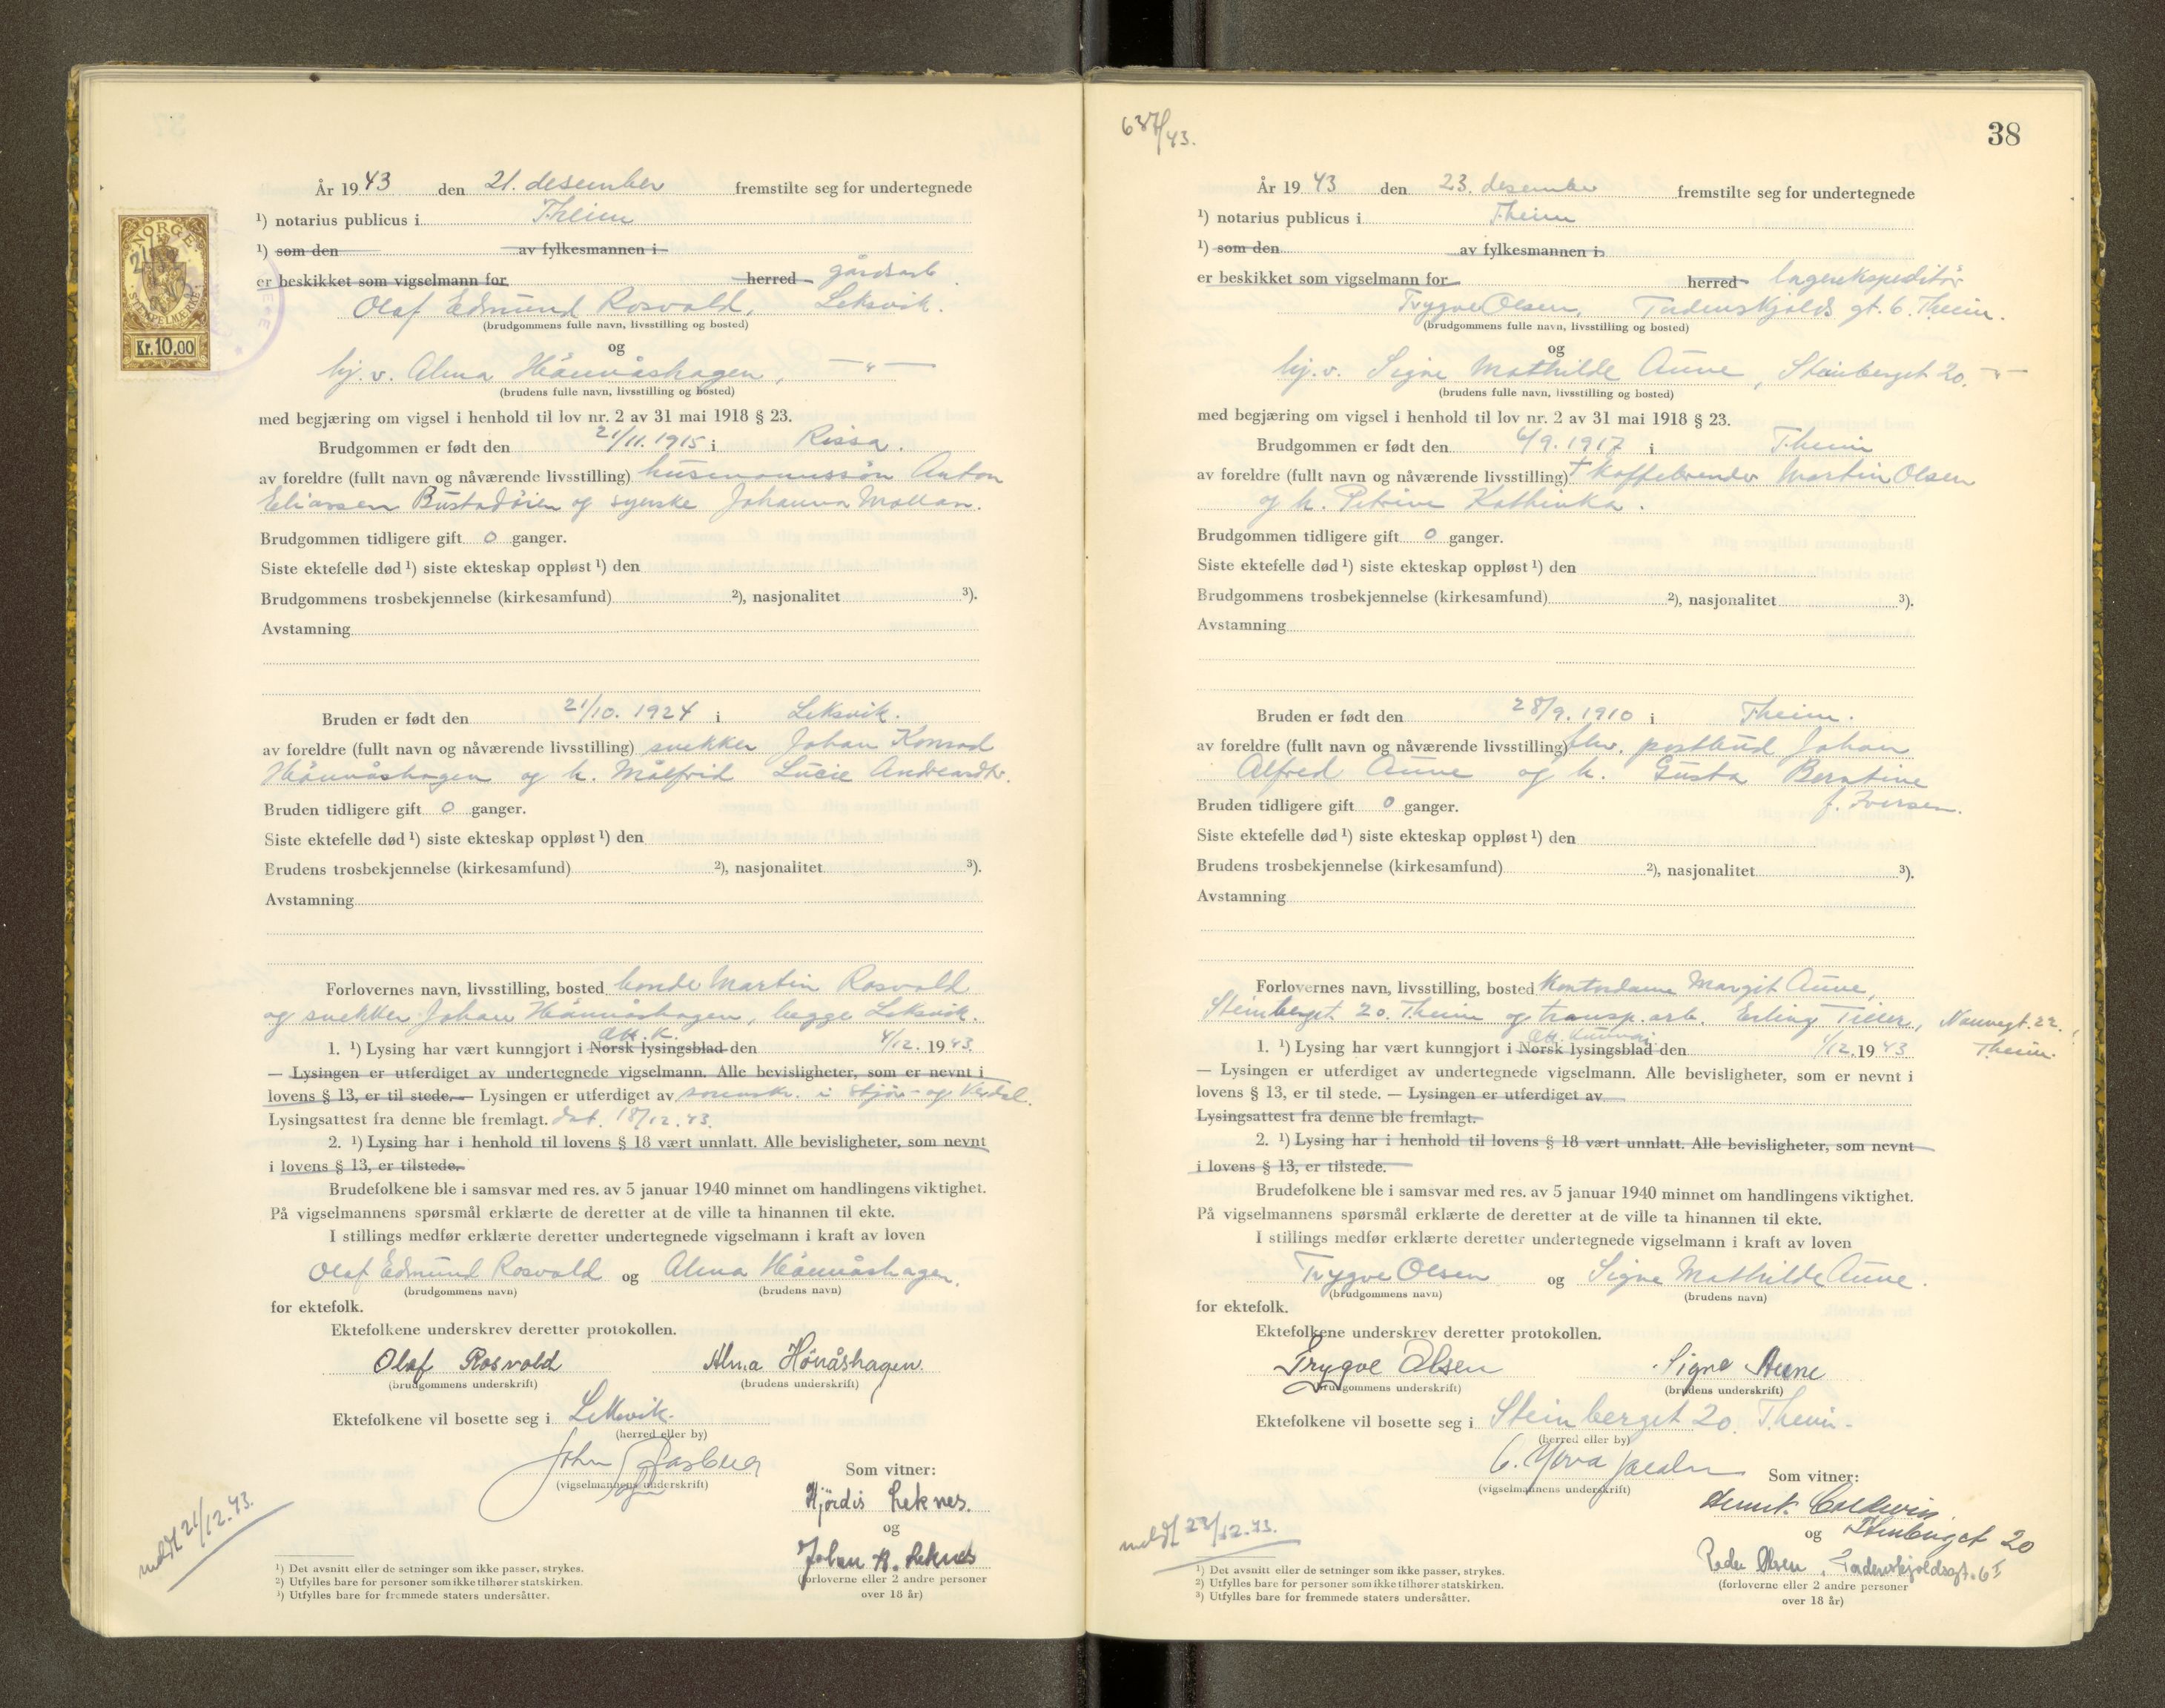 År 1943 den 21. desember fremstilte seg for undertegnede
¹) notarius publicus i Theim
¹) som den av fylkesmannen i
er beskikket som vigselmann for herred gårdsarb
Olaf Edmund Rosvold, Leksvik.
(brudgommens fulle navn, livsstilling og bosted)
og
hj. v. Alma Hönnåshagen, — " —
(brudens fulle navn, livsstilling og bosted)
med begjæring om vigsel i henhold til lov nr. 2 av 31 mai 1918 § 23.
Brudgommen er født den 21/11. 1915 i Rissa.
av foreldre (fullt navn og nåværende livsstilling) husmannssön Anton
Eliassen Bustadöien og syerske Johanna Mollan.
Brudgommen tidligere gift 0 ganger.
Siste ektefelle død ¹) siste ekteskap oppløst ¹) den
Brudgommens trosbekjennelse (kirkesamfund) ²), nasjonalitet ³).
Avstamning
Bruden er født den 21/10. 1924 i Leksvik.
av foreldre (fullt navn og nåværende livsstilling) snekker Johan Konrad
Hönnåshagen og h. Målfrid Lucie Andreasdtr.
Bruden tidligere gift 0 ganger.
Siste ektefelle død ¹) siste ekteskap oppløst ¹) den
Brudens trosbekjennelse (kirkesamfund) ²), nasjonalitet ³).
Avstamning
Forlovernes navn, livsstilling, bosted bonde Martin Rosvold
og snekker Johan Hönnåshagen, begge Leksvik.
att. k.
1. ¹) Lysing har vært kunngjort i Norsk lysingsblad den 4/12. 1943.
— Lysingen er utferdiget av undertegnede vigselmann. Alle bevisligheter, som er nevnt i
lovens § 13, er til stede. — Lysingen er utferdiget av sorenskr. i Stjör- og Verdal.
Lysingsattest fra denne ble fremlagt. dat. 18/12. 43.
2. ¹) Lysing har i henhold til lovens § 18 vært unnlatt. Alle bevisligheter, som nevnt
i lovens § 13, er tilstede.
Brudefolkene ble i samsvar med res. av 5 januar 1940 minnet om handlingens viktighet.
På vigselmannens spørsmål erklærte de deretter at de ville ta hinannen til ekte.
I stillings medfør erklærte deretter undertegnede vigselmann i kraft av loven
Olaf Edmund Rosvold og Alma Hönnåshagen.
(brudgommens navn) (brudens navn)
for ektefolk.
Ektefolkene underskrev deretter protokollen.
Olaf Rosvold Alma Hönåshagen.
(brudgommens underskrift) (brudens underskrift)
Ektefolkene vil bosette seg i Leksvik.
(herred eller by)
John
(vigselmannens underskrift)
Som vitner:
Hjördis Leknes.
og
Johan A. Leknes
(forloverne eller 2 andre personer
over 18 år)
meldt 21/12. 43.
¹) Det avsnitt eller de setninger som ikke passer, strykes.
²) Utfylles bare for personer som ikke tilhører statskirken.
³) Utfylles bare for fremmede staters undersåtter.
NORGE
STEMPELMERKE
Kr. 10.00
637/43.
38
År 1943 den 23. desember fremstilte seg for undertegnede
¹) notarius publicus i Theim
¹) som den av fylkesmannen i
er beskikket som vigselmann for herred lagerekspeditör
Trygve Olsen, Tordenskjolds gt. 6. Theim.
(brudgommens fulle navn, livsstilling og bosted)
og
hj. v. Signe Mathilde Aune, Steinberget 20. — " —
(brudens fulle navn, livsstilling og bosted)
med begjæring om vigsel i henhold til lov nr. 2 av 31 mai 1918 § 23.
Brudgommen er født den 4/9. 1917 i Theim
av foreldre (fullt navn og nåværende livsstilling) † kaffebrender Martin Olsen
og h. Petrine Kathinka.
Brudgommen tidligere gift 0 ganger.
Siste ektefelle død ¹) siste ekteskap oppløst ¹) den
Brudgommens trosbekjennelse (kirkesamfund) ²), nasjonalitet ³).
Avstamning
Bruden er født den 28/9. 1910 i Theim.
av foreldre (fullt navn og nåværende livsstilling) fhv. postbud Johan
Alfred Aune og h. Gusta Berntine
f. Iversen.
Bruden tidligere gift 0 ganger.
Siste ektefelle død ¹) siste ekteskap oppløst ¹) den
Brudens trosbekjennelse (kirkesamfund) ²), nasjonalitet ³).
Avstamning
Forlovernes navn, livsstilling, bosted Kontordame Margit Aune,
Steinberget 20. Theim og transp. arb. Erling Tiller, 22.
Theim.
att.
1. ¹) Lysing har vært kunngjort i Norsk lysingsblad den 1/12. 1943
— Lysingen er utferdiget av undertegnede vigselmann. Alle bevisligheter, som er nevnt i
lovens § 13, er til stede. — Lysingen er utferdiget av
Lysingsattest fra denne ble fremlagt.
2. ¹) Lysing har i henhold til lovens § 18 vært unnlatt. Alle bevisligheter, som nevnt
i lovens § 13, er tilstede.
Brudefolkene ble i samsvar med res. av 5 januar 1940 minnet om handlingens viktighet.
På vigselmannens spørsmål erklærte de deretter at de ville ta hinannen til ekte.
I stillings medfør erklærte deretter undertegnede vigselmann i kraft av loven
Trygve Olsen og Signe Mathilde Aune.
(brudgommens navn) (brudens navn)
for ektefolk.
Ektefolkene underskrev deretter protokollen.
Trygve Olsen Signe Aune
(brudgommens underskrift) (brudens underskrift)
Ektefolkene vil bosette seg i Steinberget 20. Theim.
(herred eller by)
(vigselmannens underskrift)
Som vitner:
og Steinberget 20
Peder Olsen, Tordenskjoldsgt. 6
(forloverne eller 2 andre personer
over 18 år)
meldt 23/12. 43.
¹) Det avsnitt eller de setninger som ikke passer, strykes.
²) Utfylles bare for personer som ikke tilhører statskirken.
³) Utfylles bare for fremmede staters undersåtter.